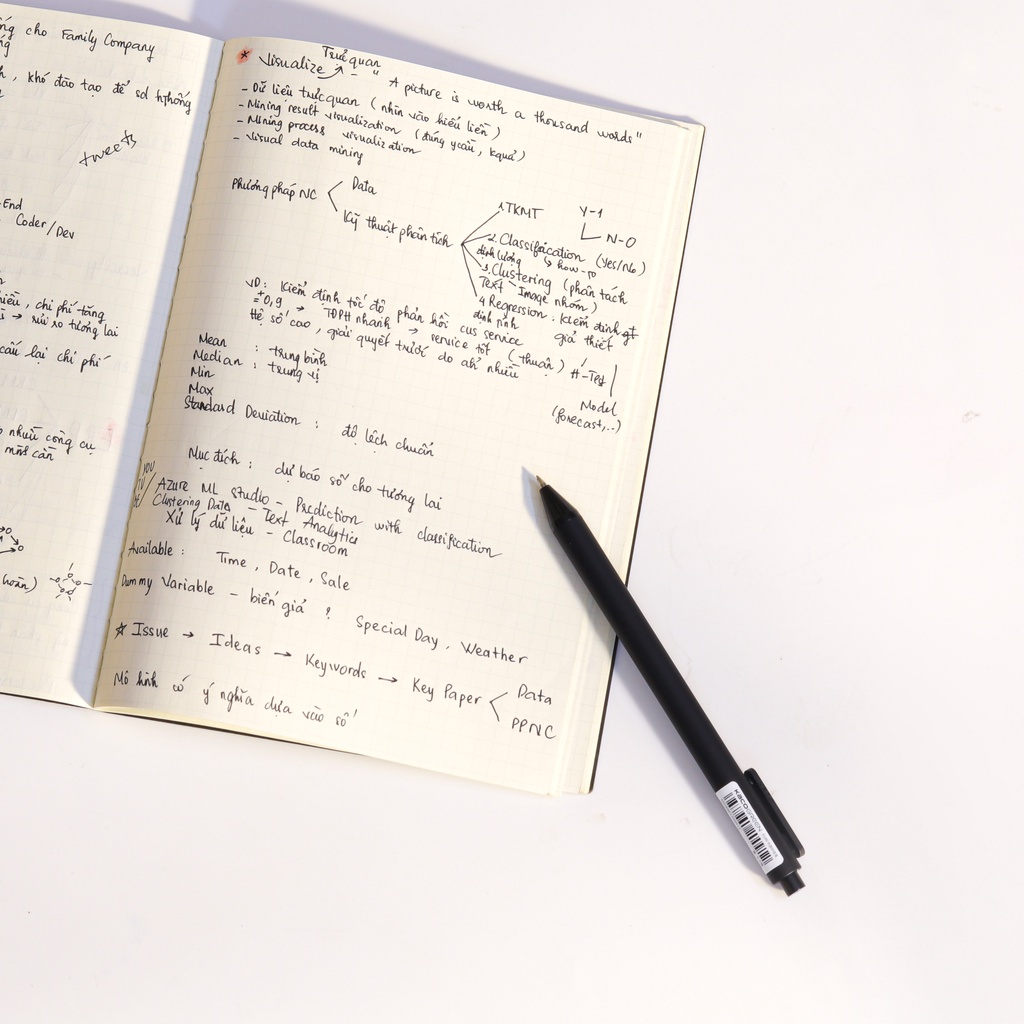 cho Family Company
, khó đào tạo để sd hthống
tweets
-End
Coder/Dev
, chi phí tăng
→ rủi ro tương lai
cấu lại chi phí
nhiều công cụ
mình cần
* Visualize Trực quan
" A picture is worth a thousand words"
- Dữ liệu trực quan (nhìn vào hiểu liền)
- Mining result visualization (đúng ycầu, kquả)
- Mining process visualization
- Visual data mining
Phương pháp NC < Data
Kỹ thuật phân tích
1. TKMT
Y-1
N-0
2. Classification (Yes/No)
định lượng → how-to
3. Clustering (phân tách
Text - Image nhóm)
4. Regression : Kiểm định gt
định tính giả thiết
VD: Kiểm định tốc độ phản hồi cus service
= 0,9 → TĐPH nhanh → service tốt (thuận)
Hệ số cao, giải quyết trước do ah' nhiều
Model
(forecast,..)
Mean : trung bình
Median : trung vị
Min
Max
Standard Deviation : độ lệch chuẩn
Mục đích : dự báo số cho tương lai
YOU
Azure ML Studio - Prediction with classification
Clustering Data - Text Analytics
Xử lý dữ liệu - Classroom
Available : Time, Date, Sale
Dummy Variable - biến giả ? Special Day, Weather
☆ Issue → Ideas → Keywords → Key Paper < Data
PPNC
Mô hình có ý nghĩa dựa vào số
KACO